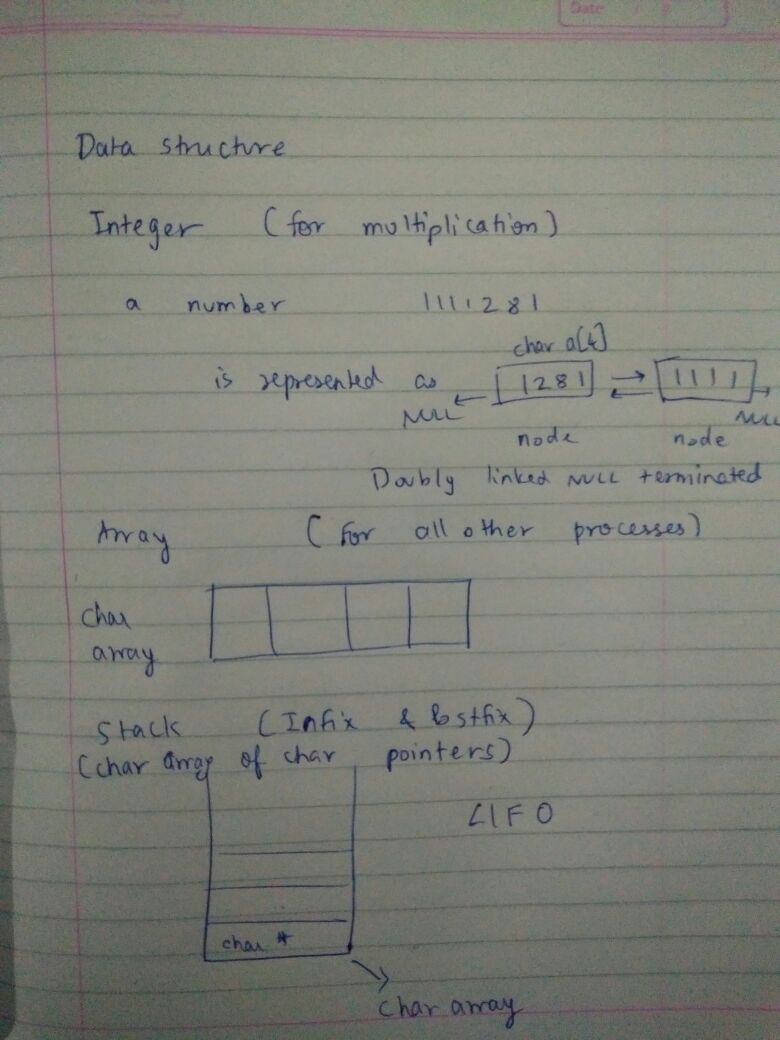 Date
Data structure
Integer (for multiplication)
a number 1111281
char a[4]
is represented as 1281 1111
NULL NULL
node node
Doubly linked NULL terminated
Array (For all other processes)
char
array
Stack (Infix & Postfix)
(char array of char pointers)
LIFO
char *
char array